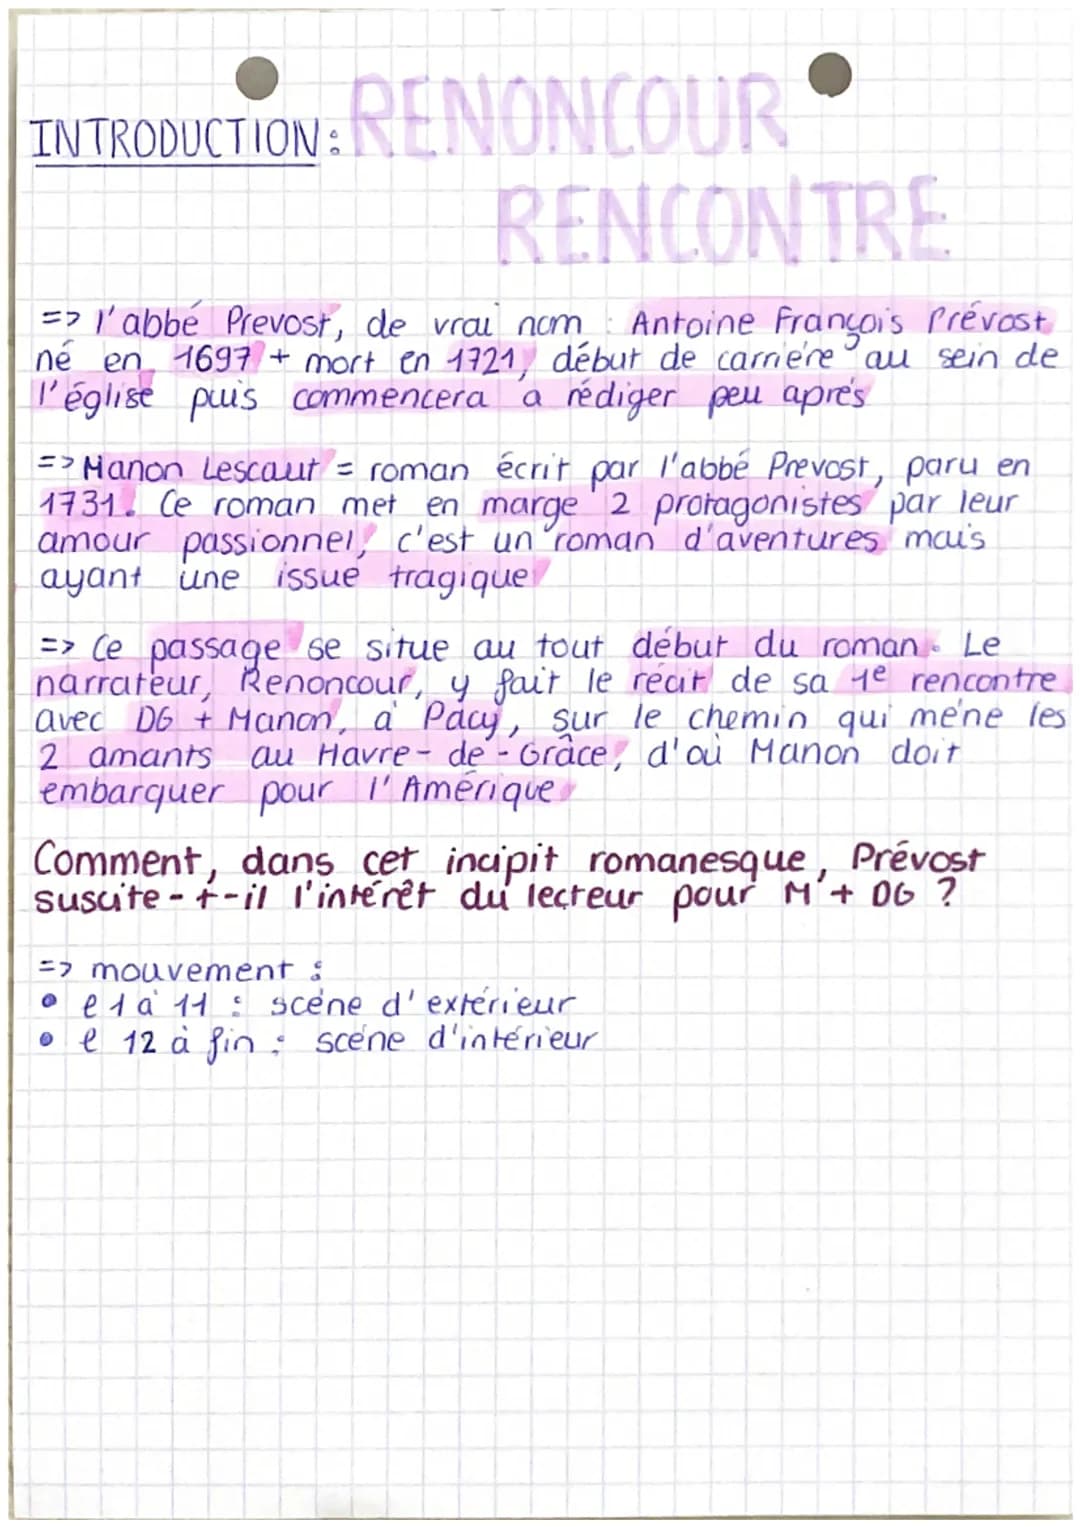 INTRODUCTION: RENONCOUR
RENCONTRE
=> l'abbé Prevost, de vrai nom : Antoine François Prévost
né en 1697 + mort en 1721, début de carrière au sein de
l'église puis commencera à rédiger peu après
=> Manon Lescaut = roman écrit par l'abbé Prevost, paru en
1731. Ce roman met en marge 2 protagonistes par leur
amour passionnel, c'est un roman d'aventures mais
ayant une issue tragique
=> Ce passage se situe au tout début du roman. Le
narrateur, Renoncour, y fait le récit de sa 1e rencontre
avec DG + Manon, à Pacy, sur le chemin qui mène les
2 amants au Havre-de-Grâce, d'où Manon doit
embarquer pour l'Amérique
Comment, dans cet incipit romanesque, Prévost
suscite-t-il l'intérêt du lecteur pour M + DG ?
=> mouvement :
• l 1 à 11 : scène d'extérieur
• l 12 à fin : scène d'intérieur